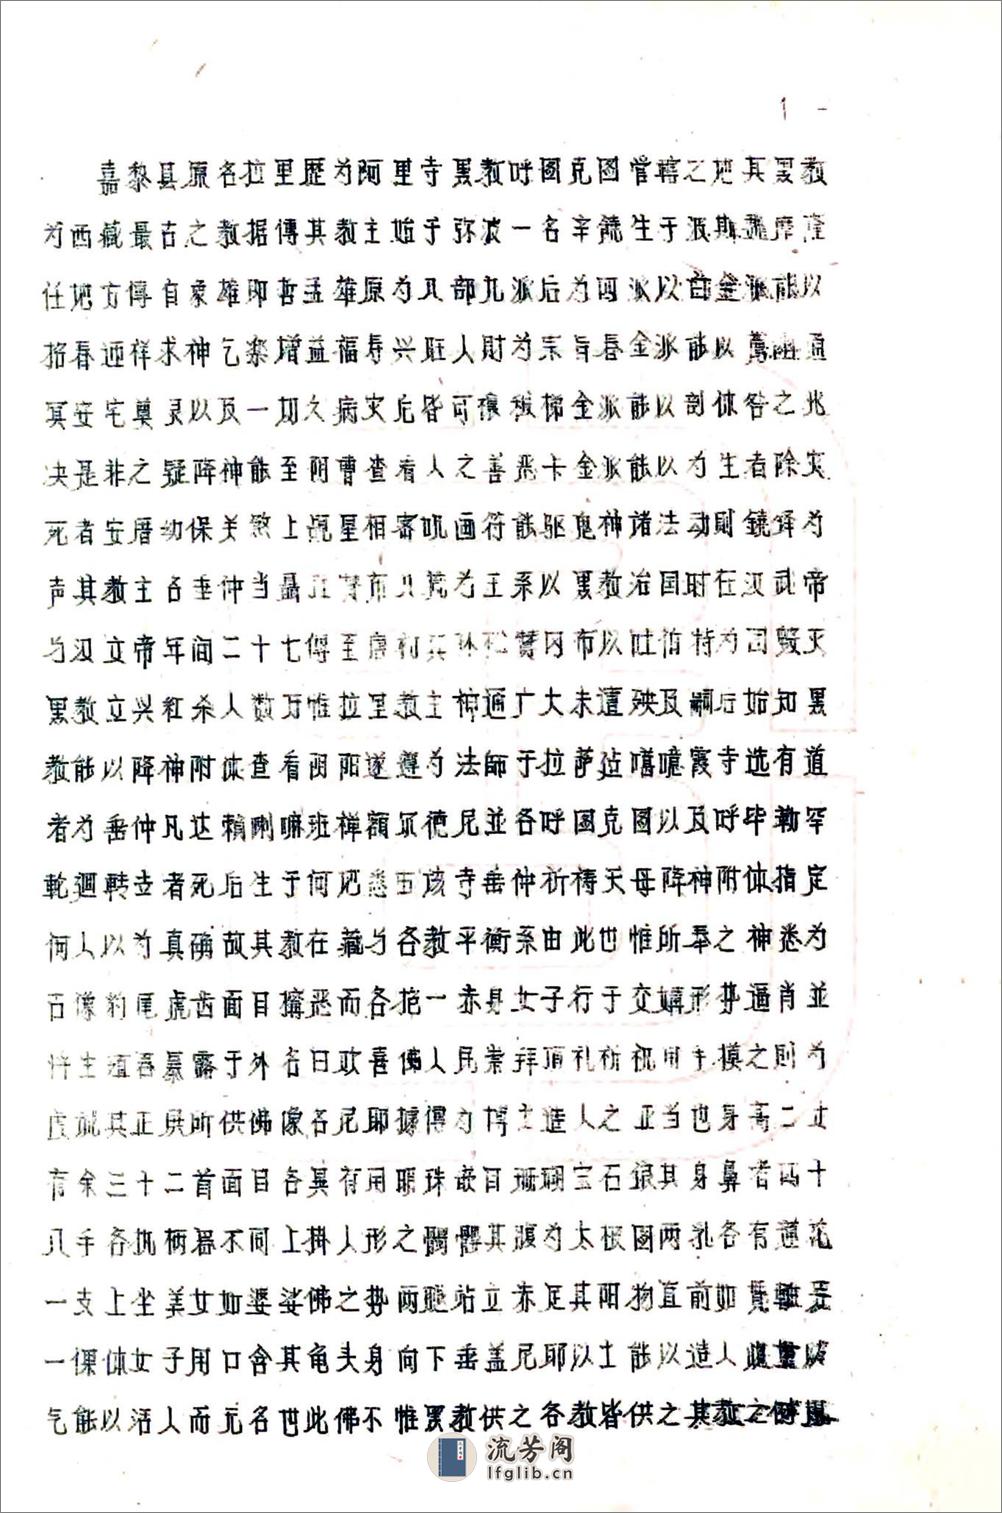 1 -
嘉黎县原名拉里歷为阿里寺黑教呼图克图管轄之地其黑教
为西藏最古之教据傳其教主始于弥波一名辛饒生于波斯魏摩隆
任地方傳自象雄即哲孟雄原为八部九派后为四派以首金派能以
招春迎祥求神乞桨增益福寿兴旺人財为宗旨春金派能以通
冥安宅奠灵以及一切久病灾危皆可禳祓梯金派能以剖休咎之兆
决是非之疑降神能至阴曹查看人之善恶卡金派能以为生者除灾
死者安厝幼保关煞上观星相密吼画符能驱鬼神诸法动则鐃鈸为
声其教主名垂仲当聶市为王系以黑教治国时在汉武帝
为汉文帝年间二十七傳至唐初冈布以吐伯特为国毁灭
黑教立兴红杀人数万惟拉里教主神通广大未遭殃及嗣后始知黑
教能以降神附体查看阴阳遂遵为法師于拉萨嘎霞寺选有道
者为垂仲凡达賴喇嘛班禅額尔德尼並各呼图克图以及呼毕勒罕
轮迴轉世者死后生于何地悉由该寺垂仲祈祷天母降神附体指定
何人以为真确故其教在藏为各教平衡系由此也惟所奉之神悉为
石像豹尾虎齿面目擰恶而各抱一赤身女子行于交媾形势逼肖並
将生殖器暴露于外名曰欢喜佛人民崇拜顶礼祈祝用手摸之则为
虔誠其正殿所供佛像名尼耶據傳为博士造人之亚当也身高二丈
有余三十二首面目各異有用眼珠嵌目珊瑚宝石鑲其身鼻者四十
八手各执柄器不同上掛人形之髑髏其腹为太极图两乳各有蓮花
一支上坐美女如婆娑佛之势两腿站立赤足其阳物直前如
一倮体女子用口含其龟头身向下垂盖尼耶以土能以造人
气能以活人而无名也此佛不惟黑教供之各教皆供之其教之
流芳阁
lfglib.cn